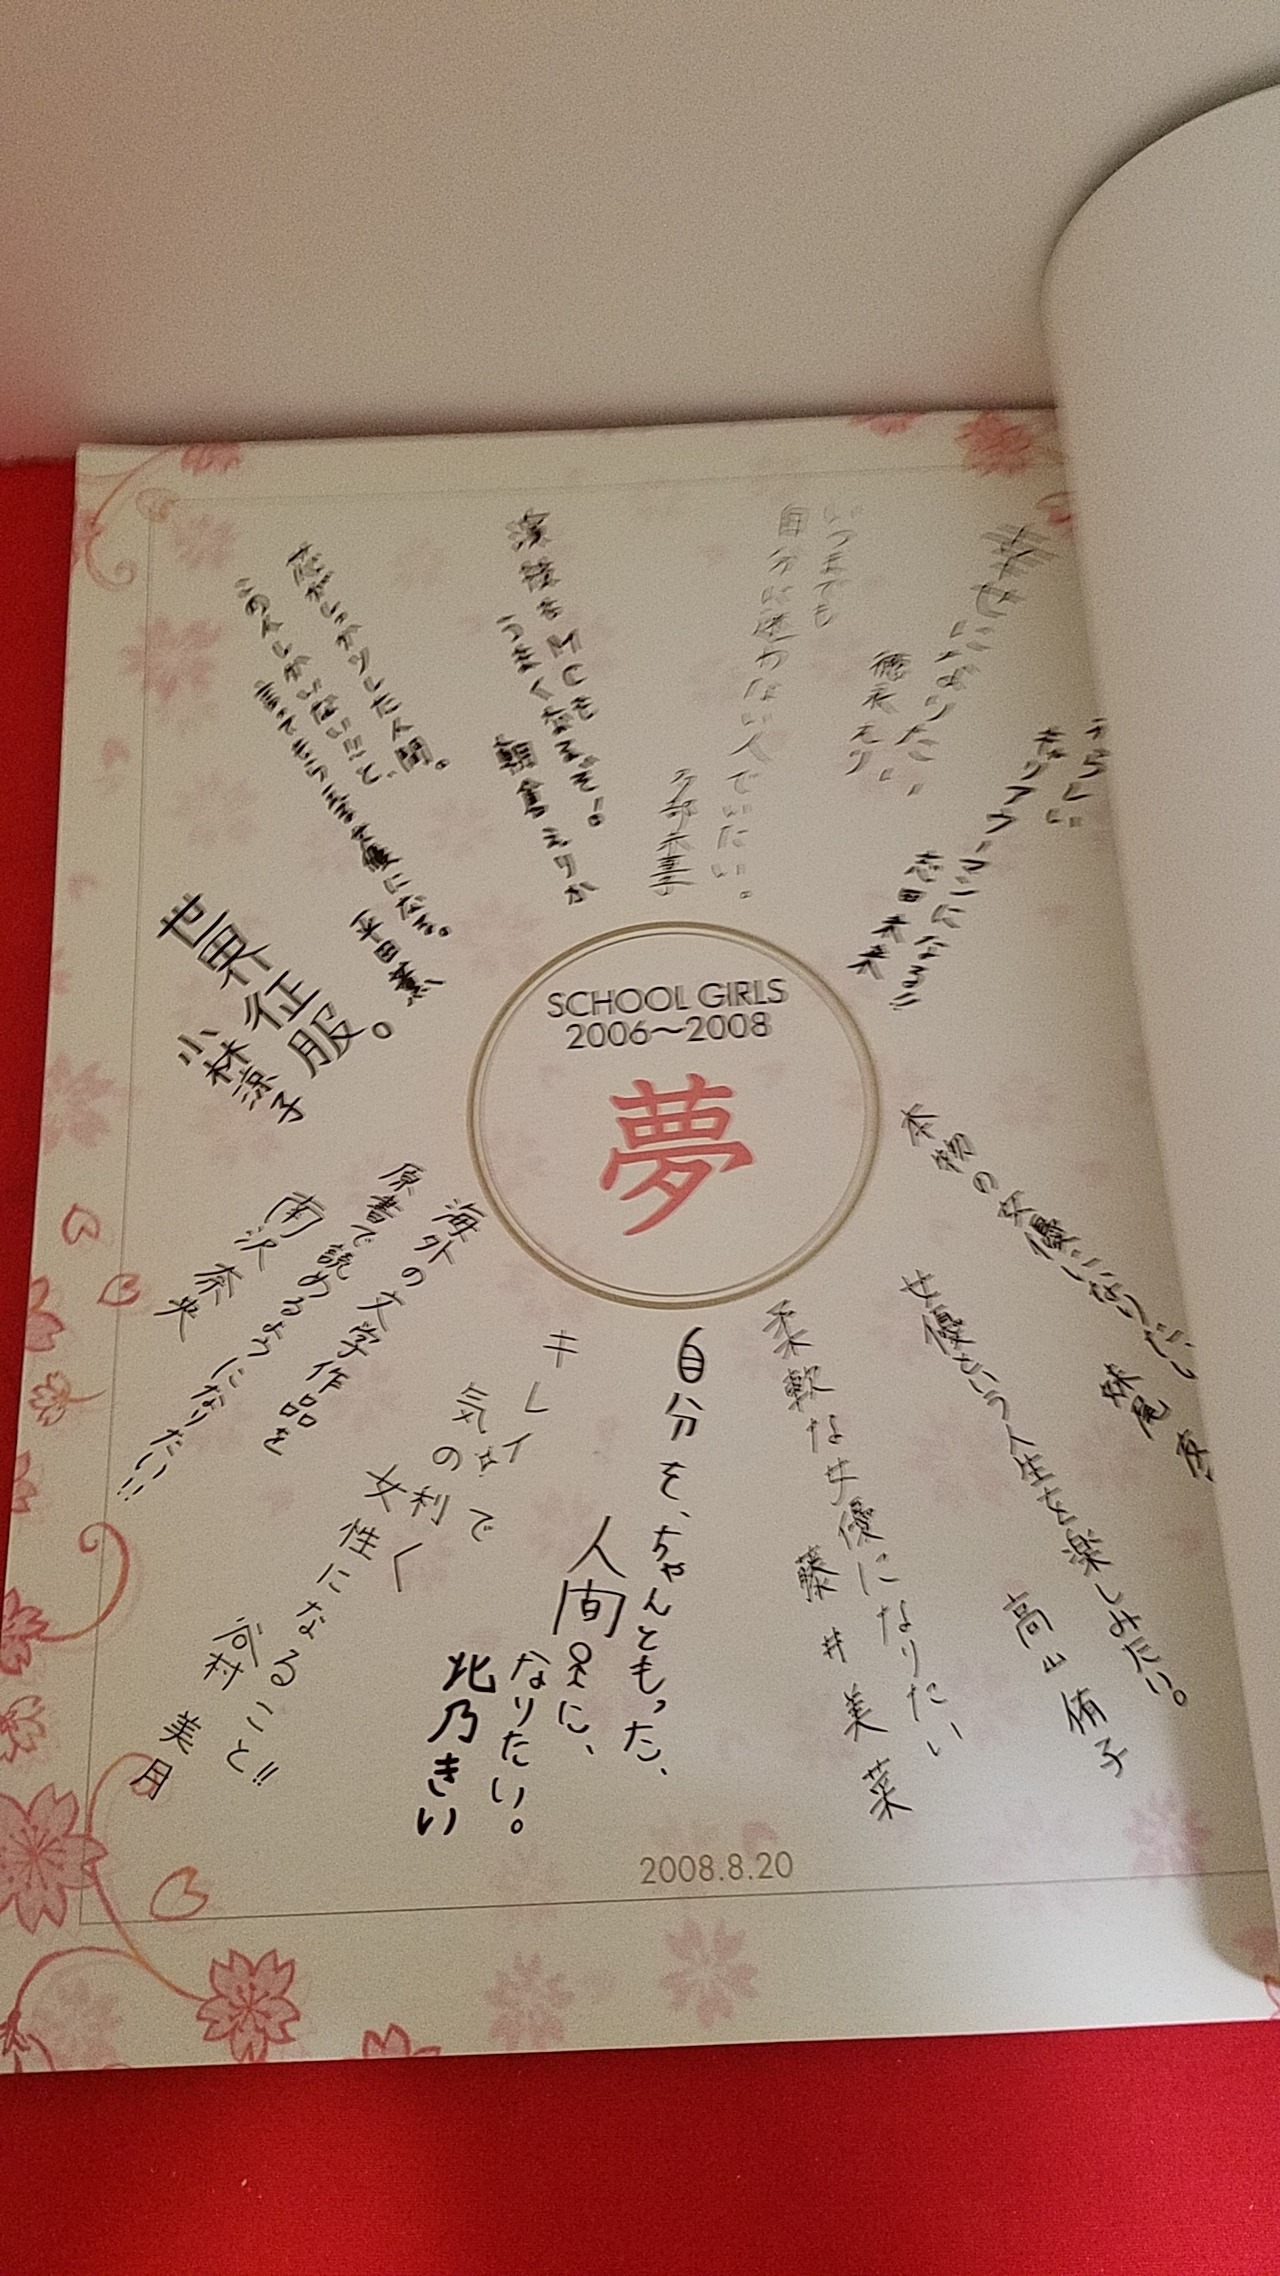 幸せになりたい
徳永えり
いつまでも
自分に迷わない人でいたい。
多部未華子
演技もMCも
うまくなるぞ!。
朝倉えりか
芯がしっかりした人間。
この人しかいない!!と、
言ってもらえる女優になる。
平田薫
世界征服。
小林涼子
海外の文学作品を
原書で読めるようになりたい!!
南沢奈央
キレイで
気の利く
女性になること!!
谷村美月
自分を、ちゃんともった、
人間に、
なりたい。
北乃きい
柔軟な女優になりたい
藤井美菜
女優という人生を楽しみたい。
高山侑子
本物の女優になりたい
キャリアウーマンになる!!
志田未来
SCHOOL GIRLS
2006〜2008
夢
2008.8.20